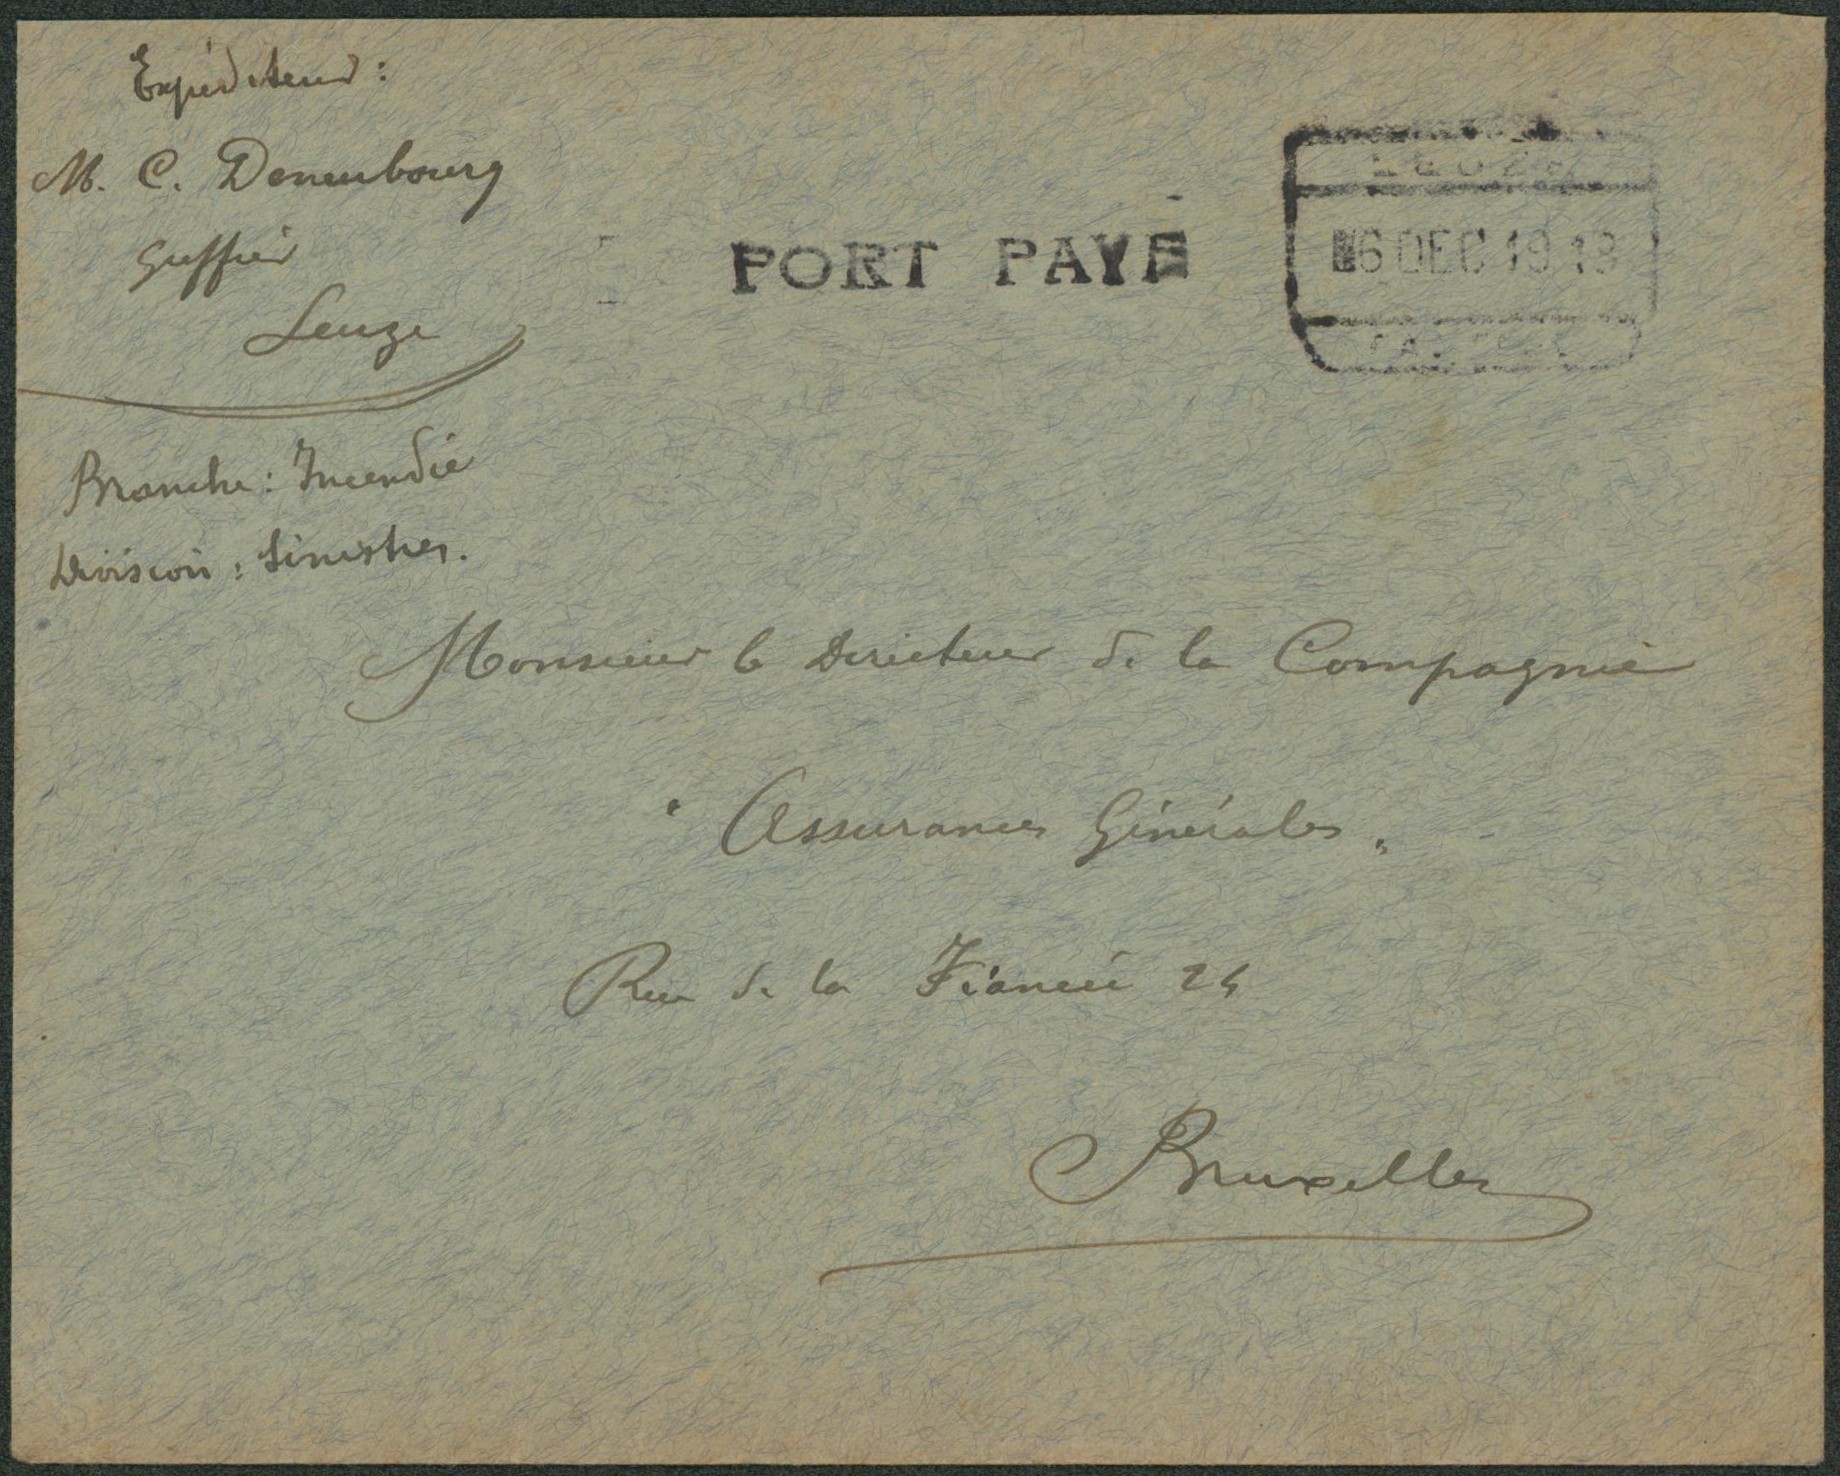 Expéditeur :
M. C. Denenbourg
Greffier
Leuze
PORT PAYÉ
LEUZE
6 DEC 1918
Branche : Incendie
Division : Sinistres.
Monsieur le Directeur de la Compagnie
" Assurances Générales "
Rue de la Fiancée 24
Bruxelles